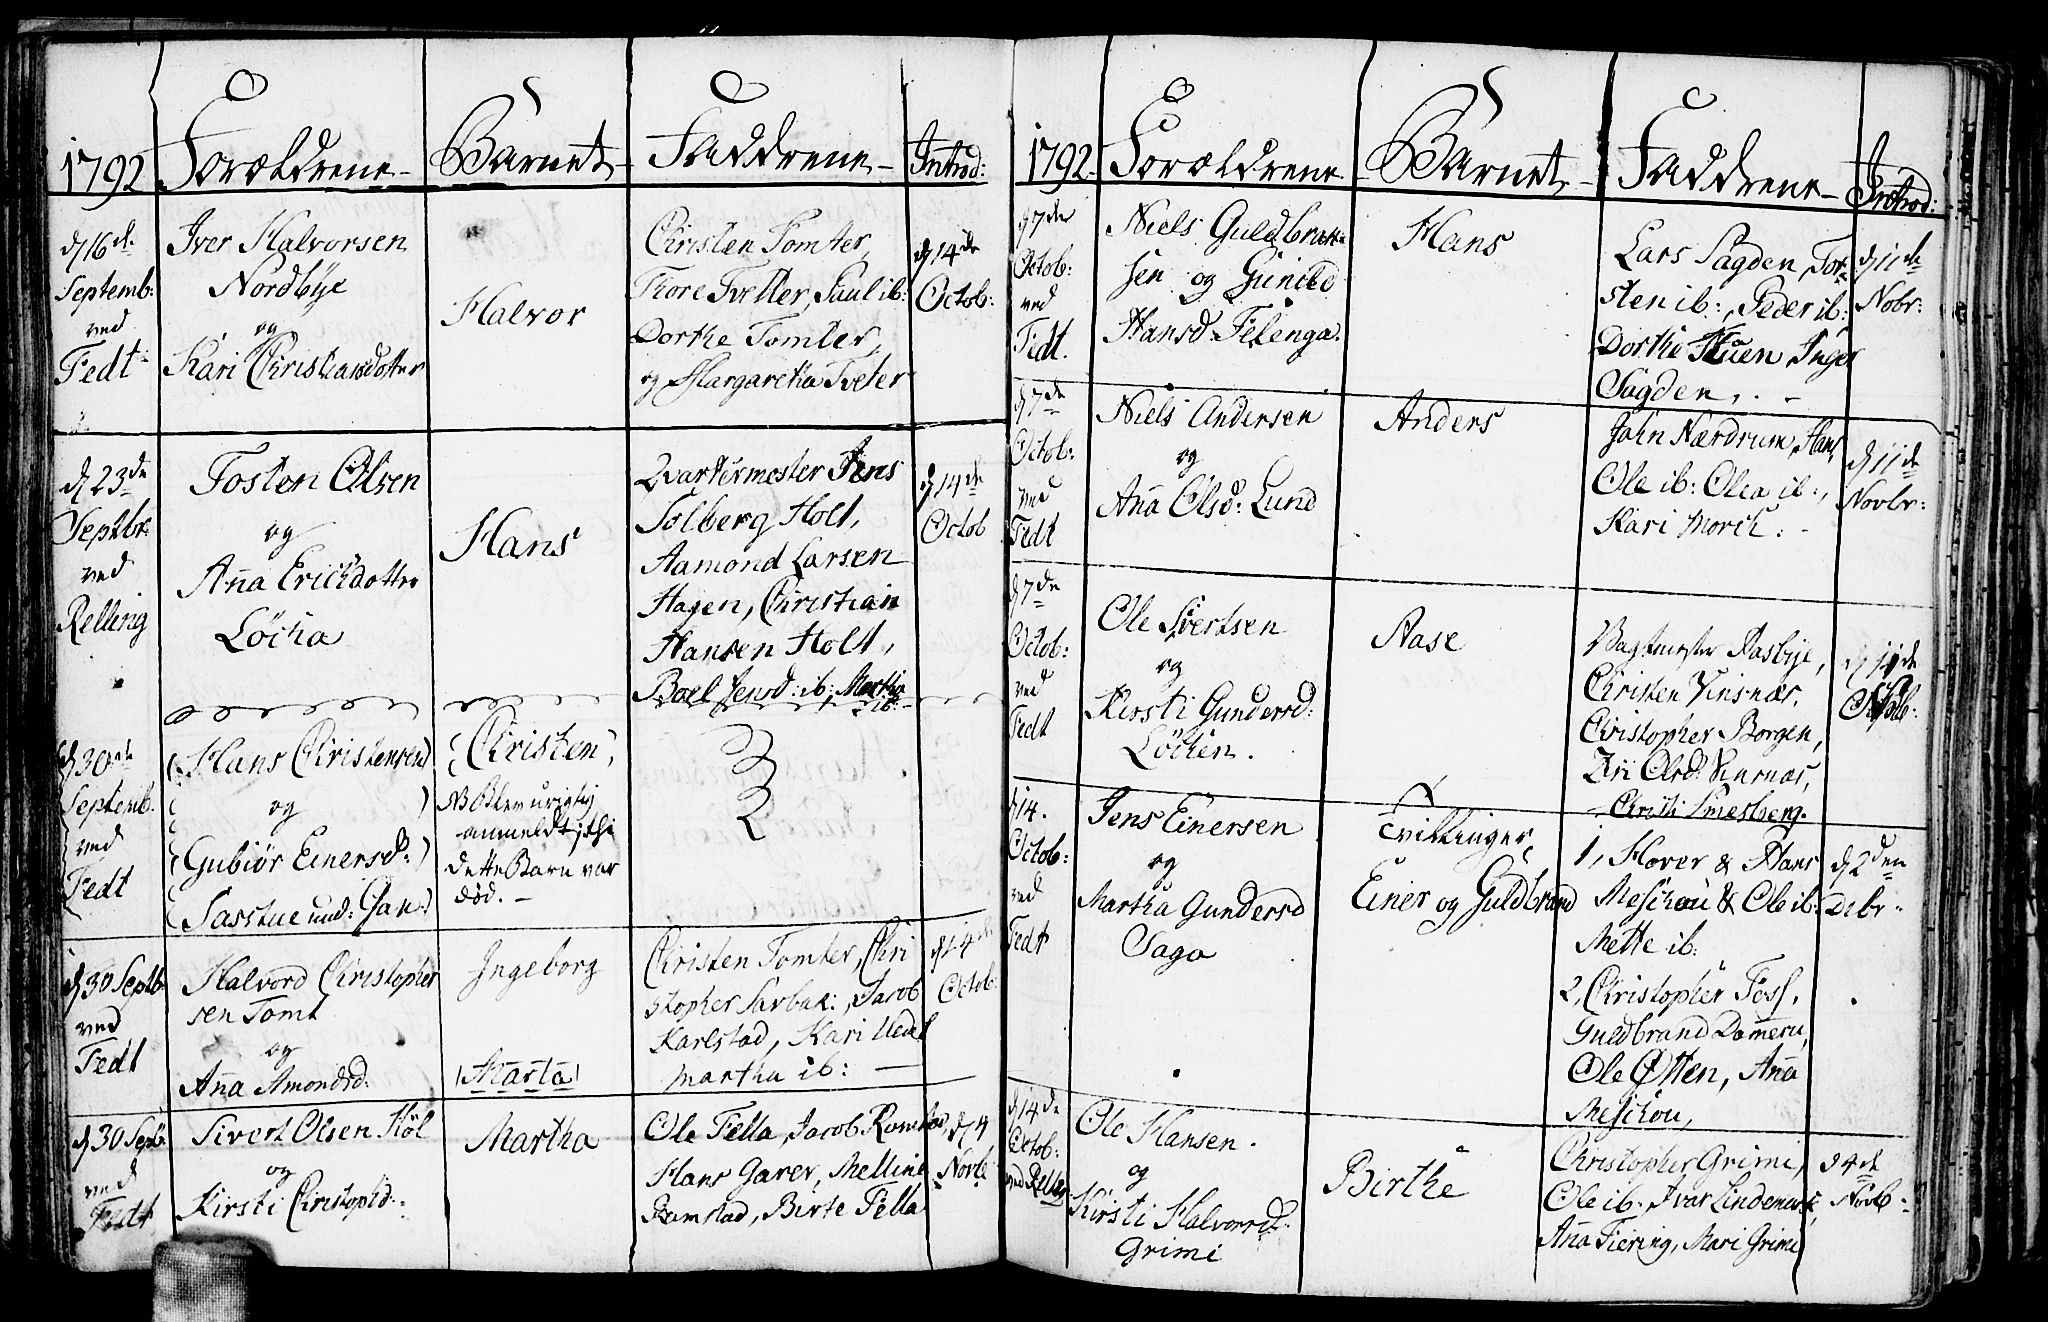 1792 Forældrene Barnet Faddrene Introd:
d 16de
Septemb:
ved
Fedt
Iver Halvorsen
Nordbye
og
Kari Christiansdotter
Halvor
Christen Tomter,
Tore Tveter, Paul ib:
Dorthe Tomter,
og Margaretha Tveter
d 14de
Octob:
d 23de
Septbr:
ved
Relling
Tosten Olsen
og
Anna Erichdotter
Løcha
Hans
Qvartermester Jens
Solberg Holt,
Aamond Larsen
Hagen, Christian
Hansen Holt,
Boel Jensd: ib, Martha
ib:
d 14de
Octob
d 30de
Septemb:
ved
Fedt
Hans Christensen
og
Gubiør Einersd:
Sasstue und:
Christen
NB Blev urigtig
anmeldt, thi
dette Barn var
død. -
d 30 Septb
ved
Fedt
Halvord Christopher
sen Tomt
og
Anna Amondsd:
Ingeborg
Marta
Christen Tomter, Chri
stopher Sarbak:, Jacob
Karlstad, Kari
martha ib:
d 14de
Octob:
d 30 Septb
ved
Fedt
Sivert Olsen Høl
og
Kirsti Christophd:
Martha
Ole Fella, Jacob Romstad,
Hans Garer, Melline
Ramstad, Birte Fella
d 4
Novbr
1792 Forældrene Barnet Faddrene Introd:
d 7de
Octob:
ved
Fedt.
Niels Guldbran
sen og Gunild
Hansd. Felenga.
Hans
Lars Sagden, Tor
sten ib:, Peder ib:
Dorthe Huen, Inger
Sagden,. -
d 11de
Nobr:
d 7de
Octob:
ved
Fedt
Niels Andersen
og
Anna Olsd: Lund
Anders
John Nærdrum, Hans,
Ole ib: Olea ib:,
Kari Morch: -
d 11de
Novbr:
d 7de
Octob:
ved
Fedt
Ole Sivertsen
og
Kirsti Gundersd:
Løchen.
Aase
Vagtmester Aasbye,
Christen Vinsnær,
Christopher Borgen,
Siri Olsd: Vinsnær,
Christi Smesberg.
d 11de
d 14.
Octob:
ved
Fedt
Jens Einersen
og
Martha Gundersd
Saga
Tvillinger,
Einer og Guldbrand
1, Hover & Hans
Meschou & Ole ib:
Mette ib:
2, Christopher Foss,
Guldbrand Dammeru,
Ole Østten, Anna
Meschou,
d 2den
Debr.
d 14de
Octob:
ved Relling
Ole Hansen.
og
Kirsti Halvorsd:
Grimi
Birthe
Christopher Grimi,
Ole ib:, Ivar Lindemark,
Anna Fiering, Mari Grimi
d 4de
Novb: